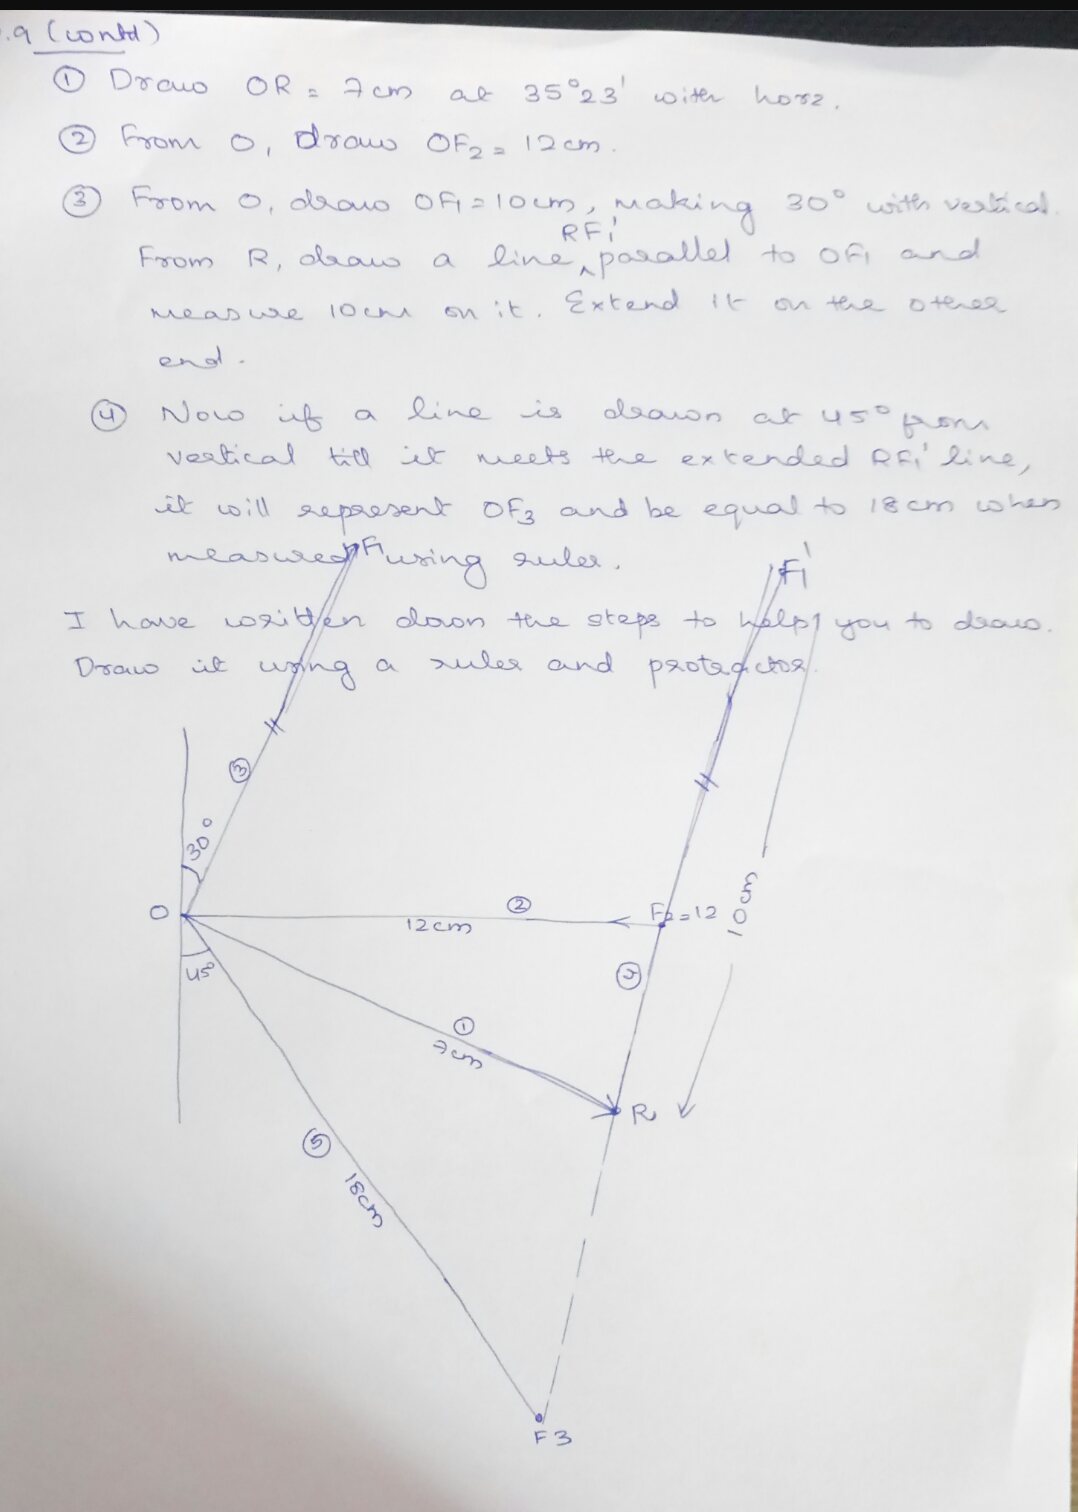 .9 (contd)
① Draw OR = 7cm at 35°23' with horz.
② From O, draw OF2 = 12cm.
③ From O, draw OF1 = 10cm, making 30° with vertical.
RF1'
From R, draw a line ^ parallel to OF1 and
measure 10cm on it. Extend it on the other
end.
④ Now if a line is drawn at 45° from
vertical till it meets the extended RF1' line,
it will represent OF3 and be equal to 18cm when
measured using ruler.
F1
F1'
I have written down the steps to help you to draw.
Draw it using a ruler and protractor.
③
30°
O
②
12cm
F2=12
10cm
45°
④
①
7cm
R
⑤
18cm
F3